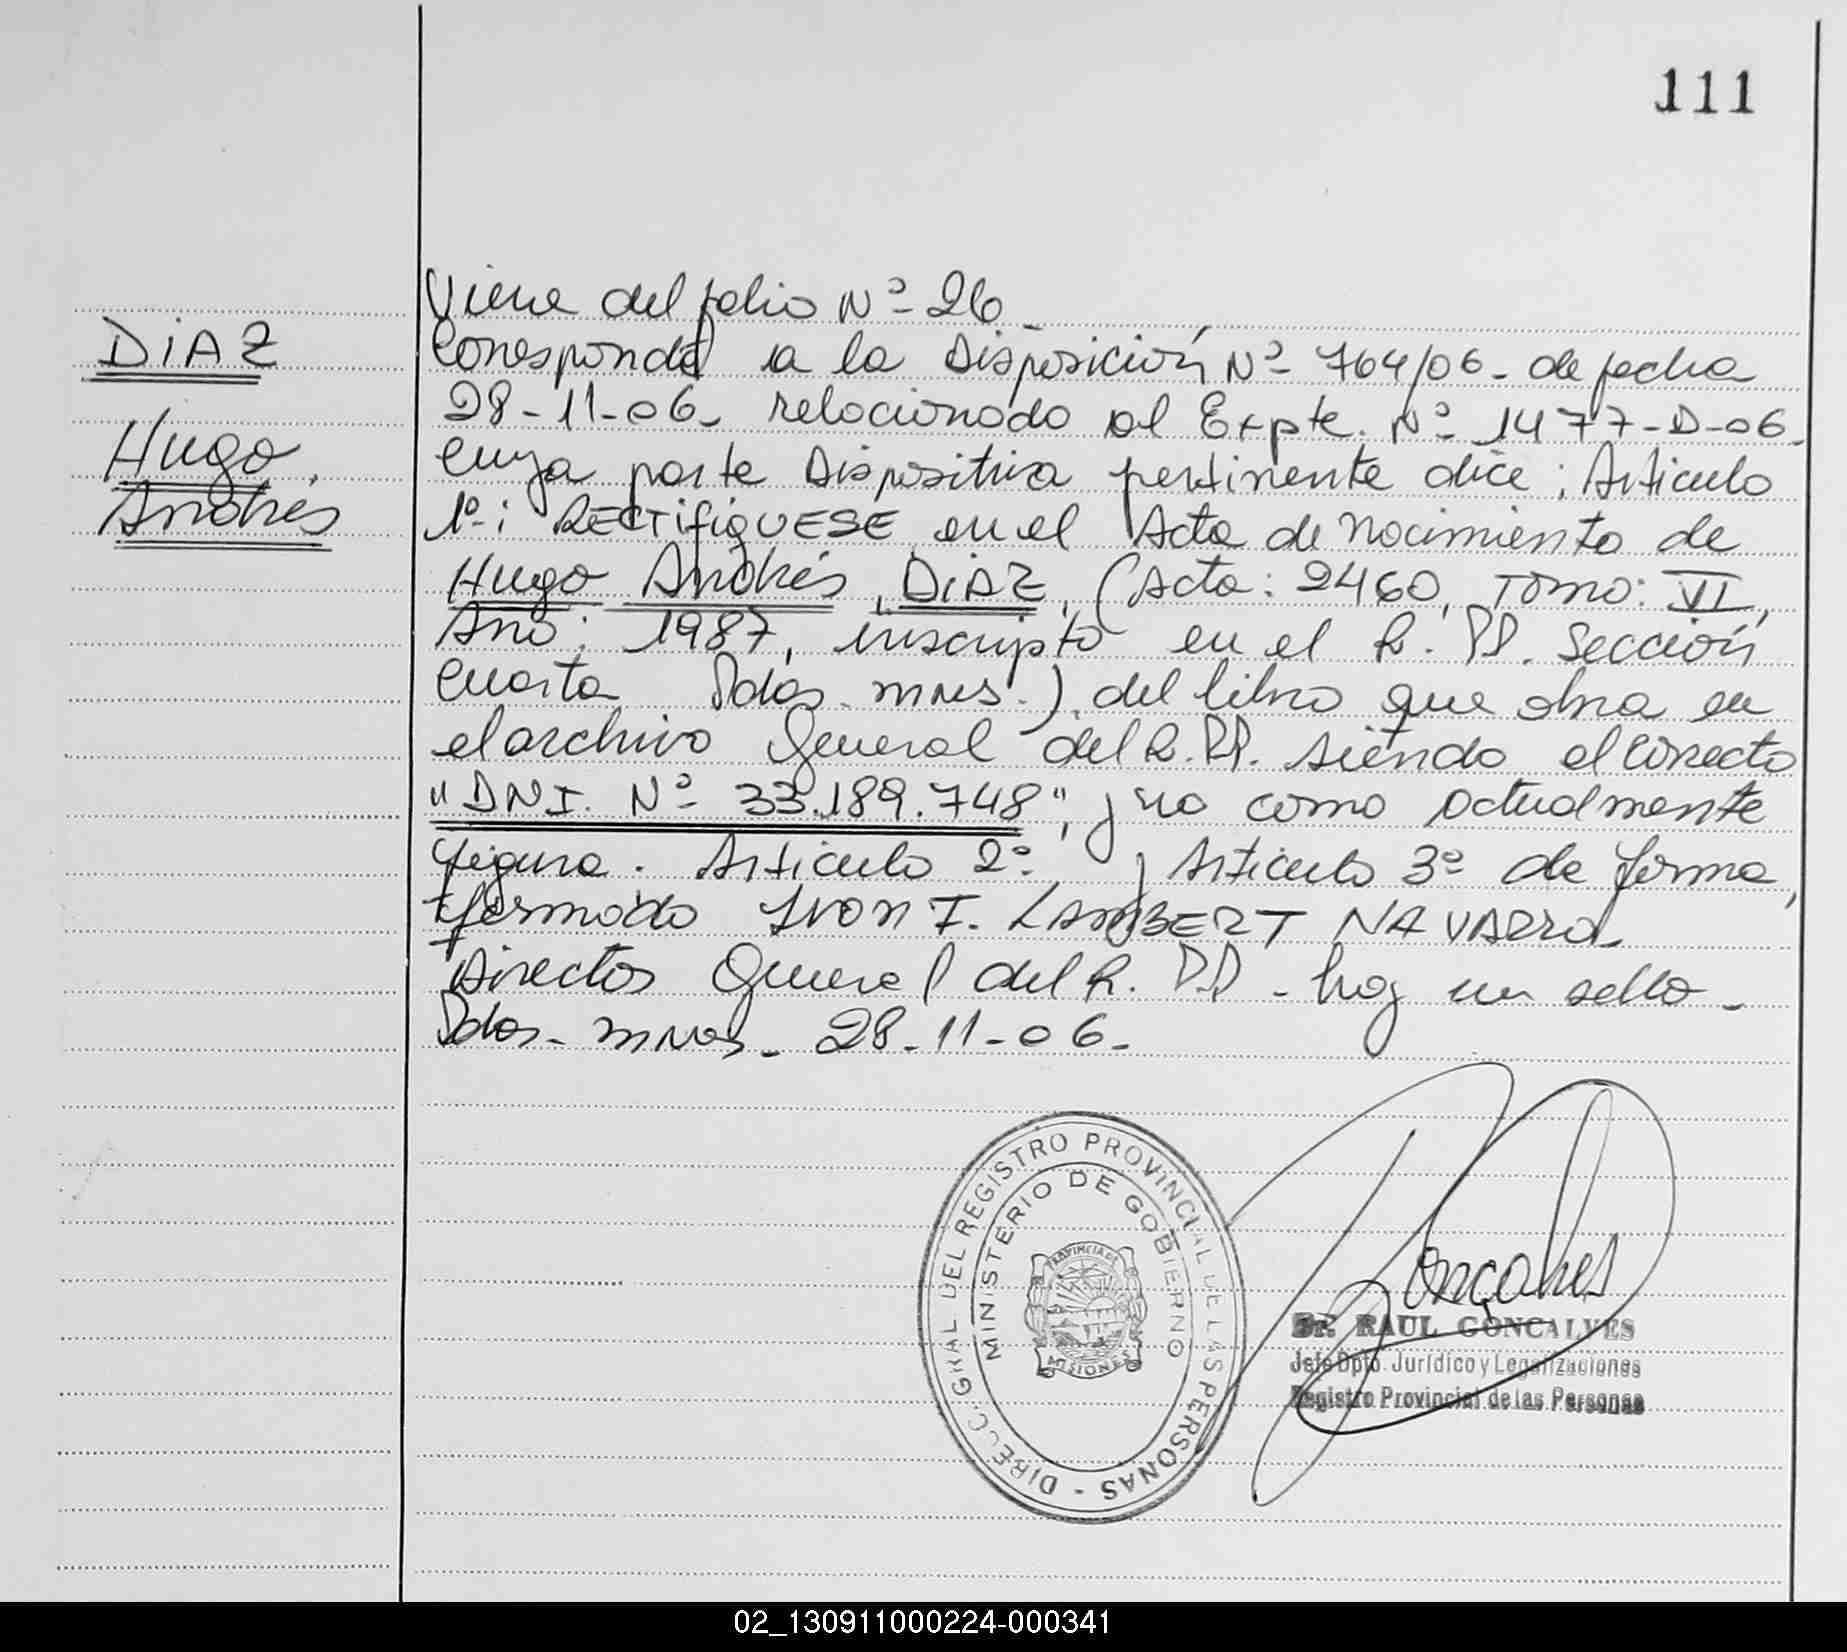 111
DiAZ
Hugo
Andrés
Viene del folio Nº 26
Corresponde a la Disposición Nº 764/06- de fecha
28-11-06- relacionado al Expte. Nº 1477-D-06-
cuya parte Dispositiva pertinente dice; Articulo
1º: RECTifiQUESE en el Acta de Nacimiento de
Hugo Andrés, DiAZ, (Acta: 2460, Tomo: VI,
Año: 1987, inscripto en el R. PP. Sección
Cuarta Pdas. mnes.) del libro que obra en
el archivo General del R. PP. siendo el correcto
"DNI. Nº 33.189.748", y no como actualmente
figura. Articulo 2º y Articulo 3º de forma,
firmado Ivon I. LAMBERT NAVARRO
Director General del R. PP - hay un sello-
Pdas- mnes- 28-11-06-
DIREC. GRAL DEL REGISTRO PROVINCIAL DE LAS PERSONAS -
MINISTERIO DE GOBIERNO
PROVINCIA DE
MISIONES
Goncalves
Dr. RAUL GONCALVES
Jefe Dpto. Jurídico y Legalizaciones
Registro Provincial de las Personas
02_130911000224-000341